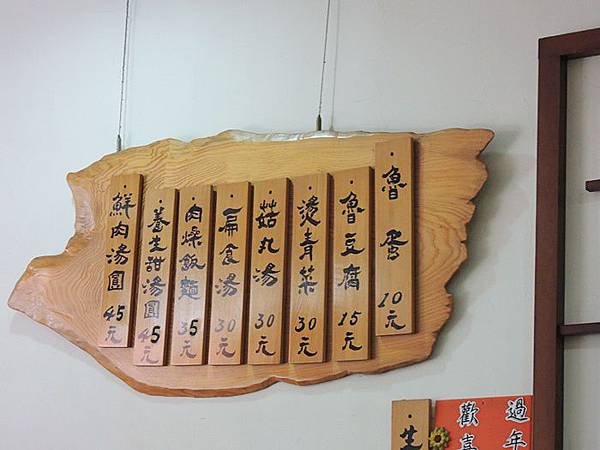 魯蛋 10元
魯豆腐 15元
燙青菜 30元
菇丸湯 30元
扁食湯 30元
肉燥飯麵 35元
養生甜湯圓 45元
鮮肉湯圓 45元
過年
歡喜